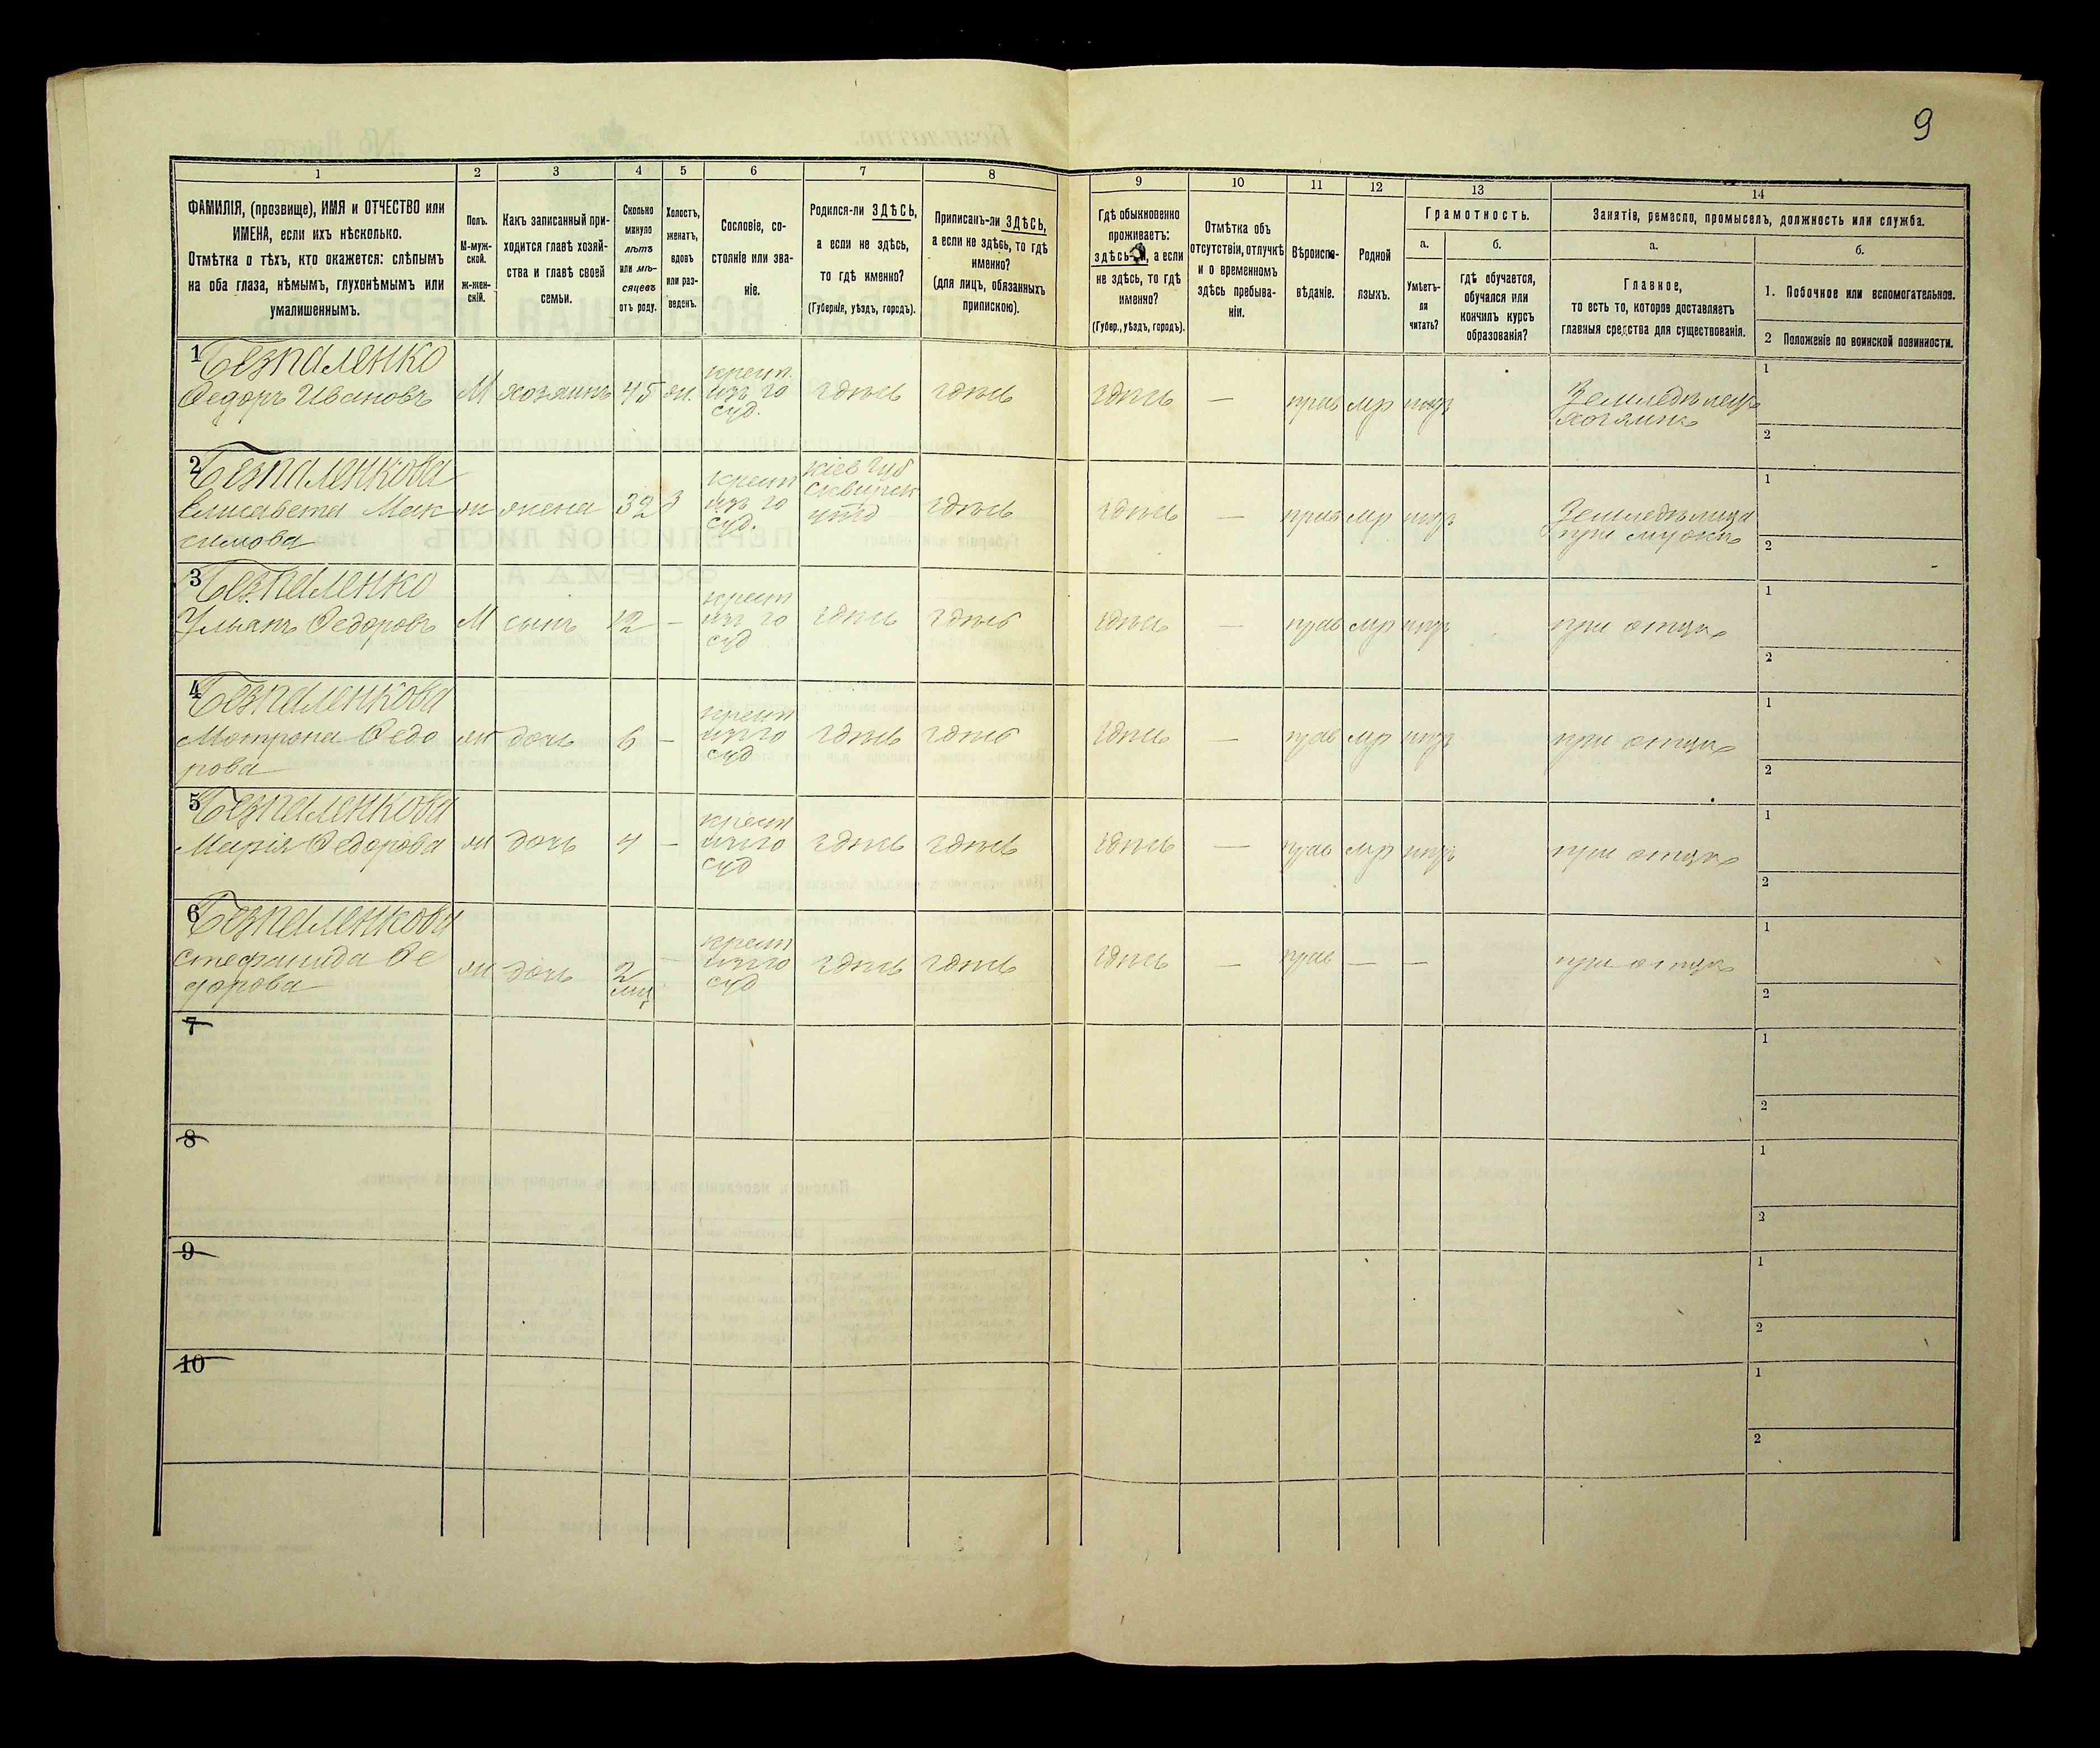 9
1
2
3
4
5
6
7
8
9
10
11
12
13
14
ФАМИЛІЯ, (прозвище), ИМЯ и ОТЧЕСТВО или
ИМЕНА, если ихъ нѣсколько.
Отмѣтка о тѣхъ, кто окажется: слѣпымъ
на оба глаза, нѣмымъ, глухонѣмымъ или
умалишеннымъ.
Полъ.
М-муж-
ской.
ж-жен-
скій.
Какъ записанный при-
ходится главѣ хозяй-
ства и главѣ своей
семьи.
Сколько
минуло
лѣтъ
или мѣ-
сяцевъ
отъ роду.
Холостъ,
женатъ,
вдовъ
или раз-
веденъ.
Сословіе, со-
стояніе или зва-
ніе.
Родился-ли ЗДѢСЬ,
а если не здѣсь,
то гдѣ именно?
(Губернія, уѣздъ, городъ).
Приписанъ-ли ЗДѢСЬ,
а если не здѣсь, то гдѣ
именно?
(для лицъ, обязанныхъ
припискою).
Гдѣ обыкновенно
проживаетъ:
здѣсь-ли, а если
не здѣсь, то гдѣ
именно?
(Губер., уѣздъ, городъ).
Отмѣтка объ
отсутствіи, отлучкѣ
и о временномъ
здѣсь пребыва-
ніи.
Вѣроиспо-
вѣданіе.
Родной
языкъ.
Грамотность.
а.
Умѣетъ-
ли
читать?
б.
гдѣ обучается,
обучался или
кончилъ курсъ
образованія?
Занятіе, ремесло, промыселъ, должность или служба.
а.
Главное,
то есть то, которое доставляетъ
главныя средства для существованія.
б.
1. Побочное или вспомогательное.
2 Положеніе по воинской повинности.
1 Безпаленко
Федоръ Ивановъ М хозяинъ 45 ж. здѣсь здѣсь здѣсь — прав мр
крест.
изъ го
суд.
хозяинъ
1
2
2 Безпаленкова
Елисавета Мак
симова
ж жена 32 З
крест
изъ го
суд.
Кіев губ
Сквирск
уѣзд
здѣсь здѣсь — прав мр
Земледѣлица
при мужѣ
1
2
3 Безпаленко
Ульянъ Федоровъ М сынъ 12 —
крест
изъ го
суд
здѣсь здѣсь здѣсь — прав мр
при отцѣ
1
2
4 Безпаленкова
Мотрона Федо
рова
ж дочь 6 —
крест
изъ го
суд
здѣсь здѣсь здѣсь — прав мр
при отцѣ
1
2
5 Безпаленкова
Марія Федорова ж дочь 4 —
крест
изъ го
суд
здѣсь здѣсь здѣсь — прав мр
при отцѣ
1
2
6 Безпаленкова
Стефанида Фе
дорова
ж дочь 2
мц
—
крест
изъ го
суд
здѣсь здѣсь здѣсь — прав — —
при отцѣ
1
2
7
1
2
8
1
2
9
1
2
10
1
2